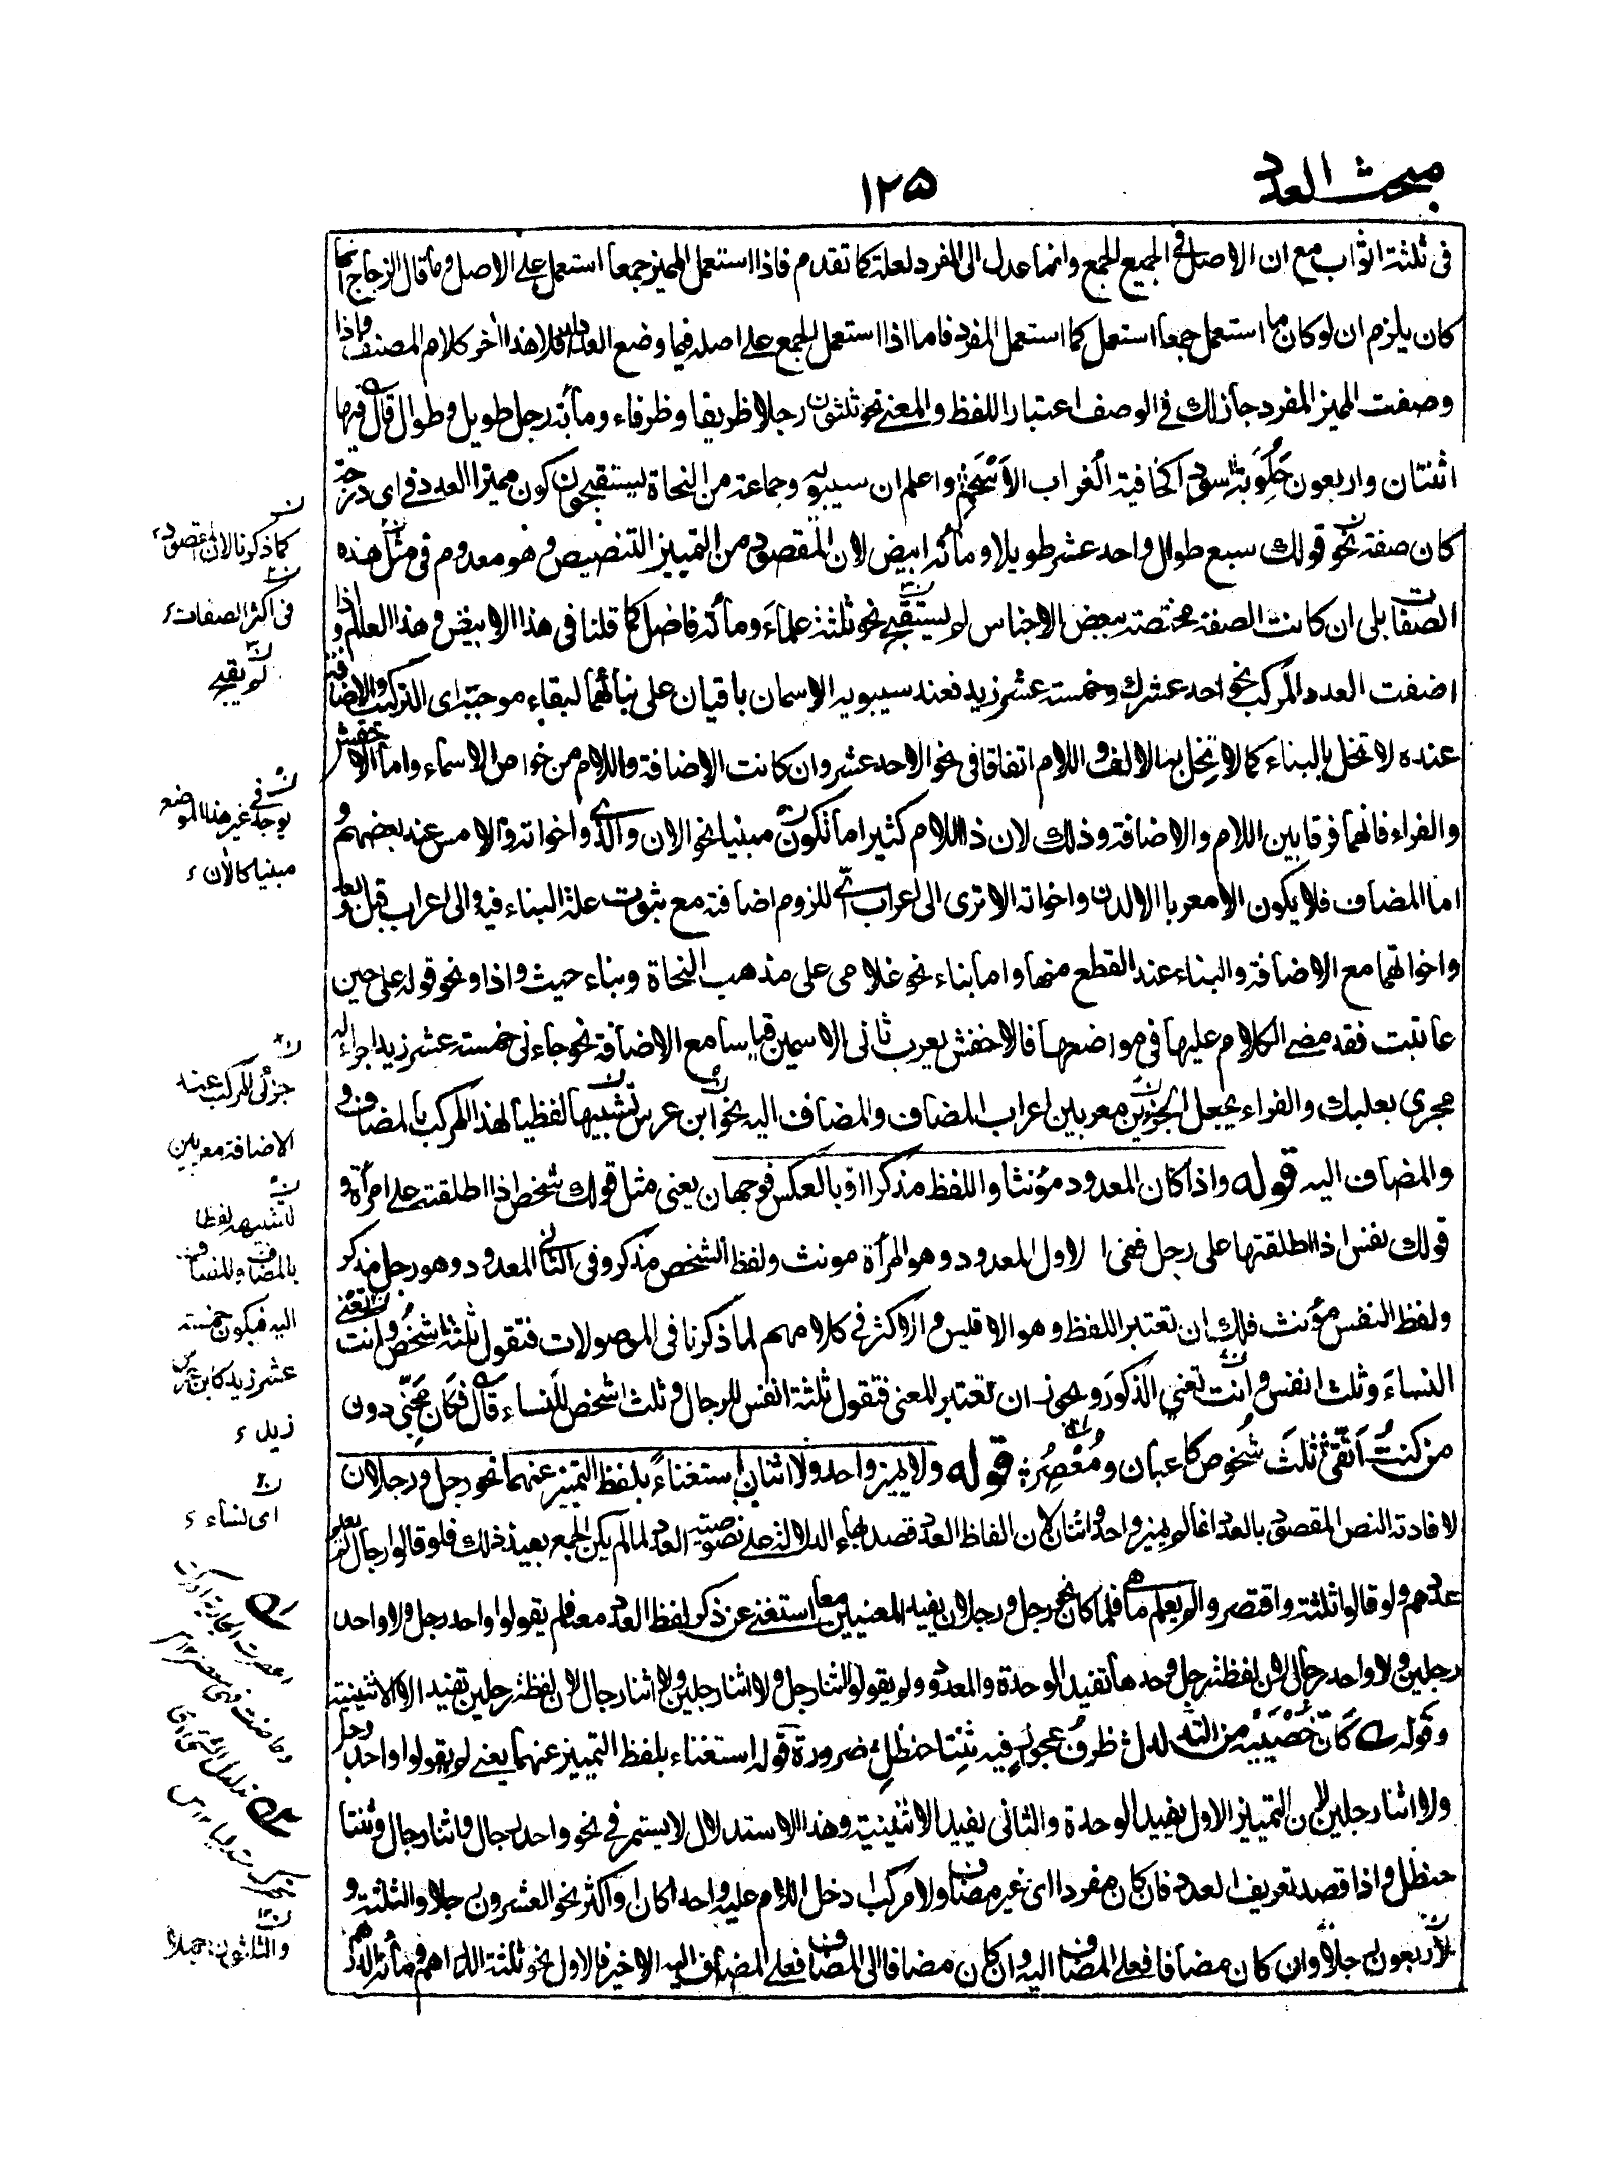 مبحث العدد
١٢٥
فى ثلثة اثواب مع ان الاصل فى الجميع الجمع وانما عدل الى المفرد لعلة كما تقدم فاذا استعمل المميز جمعا استعمل على الاصل وما قال الزجاج انما
كان يلزم ان لو كان ما استعمل جمعا استعمل كما استعمل المفرد فاما اذا استعمل الجمع على اصله فيما وضع العدد له فلا هذا أخر كلام المصنف واذا
وصفت المميز المفرد جاز لك فى الوصف اعتبار اللفظ والمعنى نحو ثلثون رجلا ظريفا وظرفاء ومأة رجل طويل وطوال قال فيها
اثنتان واربعون حَلُوبَةً سودا كخافية الغراب الأَسْحَمِ واعلم ان سيبويه وجماعة من النحاة يستقبحون كون مميز العدد فى اى درجة
كان صفة نحو قولك سبع طوال واحد عشر طويلا ومأة ابيض لان المقصود من التمييز التنصيص وهو معدوم فى مثل هذه
الصفات بلى ان كانت الصفة مختصة ببعض الاجناس لم يستقبح نحو ثلثة علماء ومأة فاضل كما قلنا فى هذا الابيض وهذا العالم واذا
اضفت العدد المركب نحو احد عشرك وخمسة عشر زيد فعند سيبويه الاسمان باقيان على بنائهما لبقاء موجبه اى التركيب والاضافة
عنده لا تخل بالبناء كما لا يخل بها الالف واللام اتفاقا فى نحو الاحد عشر وان كانت الاضافة واللام من خواص الاسماء واما الاخفش
والفراء فانهما فرقا بين اللام والاضافة وذلك لان ذا اللام كثيرا ما تكون مبنيا نحو الان والذى واخواته والامس عند بعضهم و
اما المضاف فلا يكون الا معربا الا لدن واخواته الا ترى الى اعراب أىّ للزوم اضافته مع ثبوت علة البناء فيه والى اعراب قبل وبعد
واخواتهما مع الاضافة والبناء عند القطع منها واما بناء نحو غلامى على مذهب النحاة وبناء حيث واذا ونحو قوله على حين
عاتبت فقد مضى الكلام عليها فى مواضعها فالاخفش يعرب ثانى الاسمين قياسا مع الاضافة نحو جاءنى خمسة عشر زيد اجراء له
مجرى بعلبك والفراء يجعل الجزئين معربين اعراب المضاف والمضاف اليه نحو ابن عرس تشبيها لفظيا لهذا المركب بالمضاف و
والمضاف اليه قوله واذا كان المعدود مؤنثا واللفظ مذكرا او بالعكس فوجهان يعنى مثل قولك شخص اذا اطلقته على امرأة و
قولك نفس اذا اطلقتها على رجل ففى الاول المعدود وهو المرأة مونث ولفظ الشخص مذكر وفى الثانى المعدود وهو رجل مذكر
ولفظ النفس مؤنث فلك ان تعتبر اللفظ وهو الاقيس والاكثر فى كلامهم لما ذكرنا فى الموصولات فتقول ثلثة اشخص وانت تعنى
النساء وثلث انفس وانت تعنى الذكور ويجوز ان تعتبر المعنى فتقول ثلثة انفس للرجال وثلث اشخص للنساء قال فكان مجنّى دون
من كنتُ اتّقى ثلثَ شُخُوصٍ كاعبان ومُعْصِرُ قوله ولا يميز واحد ولا اثنان استغناءً بلفظ التمييز عنهما نحو رجل ورجلان
لافادته النص المقصود بالعدد انما لم يميز واحد واثنان لان الفاظ العدد قصد بها الدلالة على نصوصية العدد لما لم يكن الجمع يفيد ذلك فلو قالوا رجال لم يعلم
عددهم ولو قالوا ثلثة واقتصروا لم يعلم ما هى فلما كان نحو رجل ورجلان يفيد المعنيين معا استغنى عن ذكر لفظ العدد معه فلم يقولوا واحد رجل ولا واحد
رجلين ولا واحد رجال لان لفظة رجل وحدها تفيد الوحدة والمعدود ولم يقولوا اثنا رجل ولا اثنا رجلين ولا اثنا رجال لان لفظة رجلين تفيد الاثنينية
وقوله كانّ خُصْيَيْهِ من التدلدل ظرفُ عجوزٍ فيه ثنتا حنظلِ ضرورة قوله استغناء بلفظ التمييز عنهما يعنى لم يقولوا واحد رجل
ولا اثنا رجلين لان التمييز الاول يفيد الوحدة والثانى يفيد الاثنينية وهذا الاستدلال لا يستمر فى نحو واحد رجال واثنا رجال وثنتا
حنظل واذا قصد تعريف العدد فان كان مفردا اى غير مضاف ولا مركب دخل اللام عليه واحدا كان او اكثر نحو العشرون رجلا والثلثة و
الأربعون رجلا وان كان مضافا فعلى المضاف اليه وان كان مضافا الى المضاف فعلى المضاف اليه الاخير فالاول نحو ثلثة الدراهم ومأة الدرهم
كما ذكرنا لان المقصود
فى اكثر الصفات
لم يقبح
يوجد فى غير هذا الموضع
مبنيا كالأن
جزئى المركب عند
الاضافة معربين
لتشبهه لفظا
بالمضاف والمضاف
اليه فيكون خمسة
عشر زيد كابن عرس
زيد
اى نساء
والثلثون رجلا